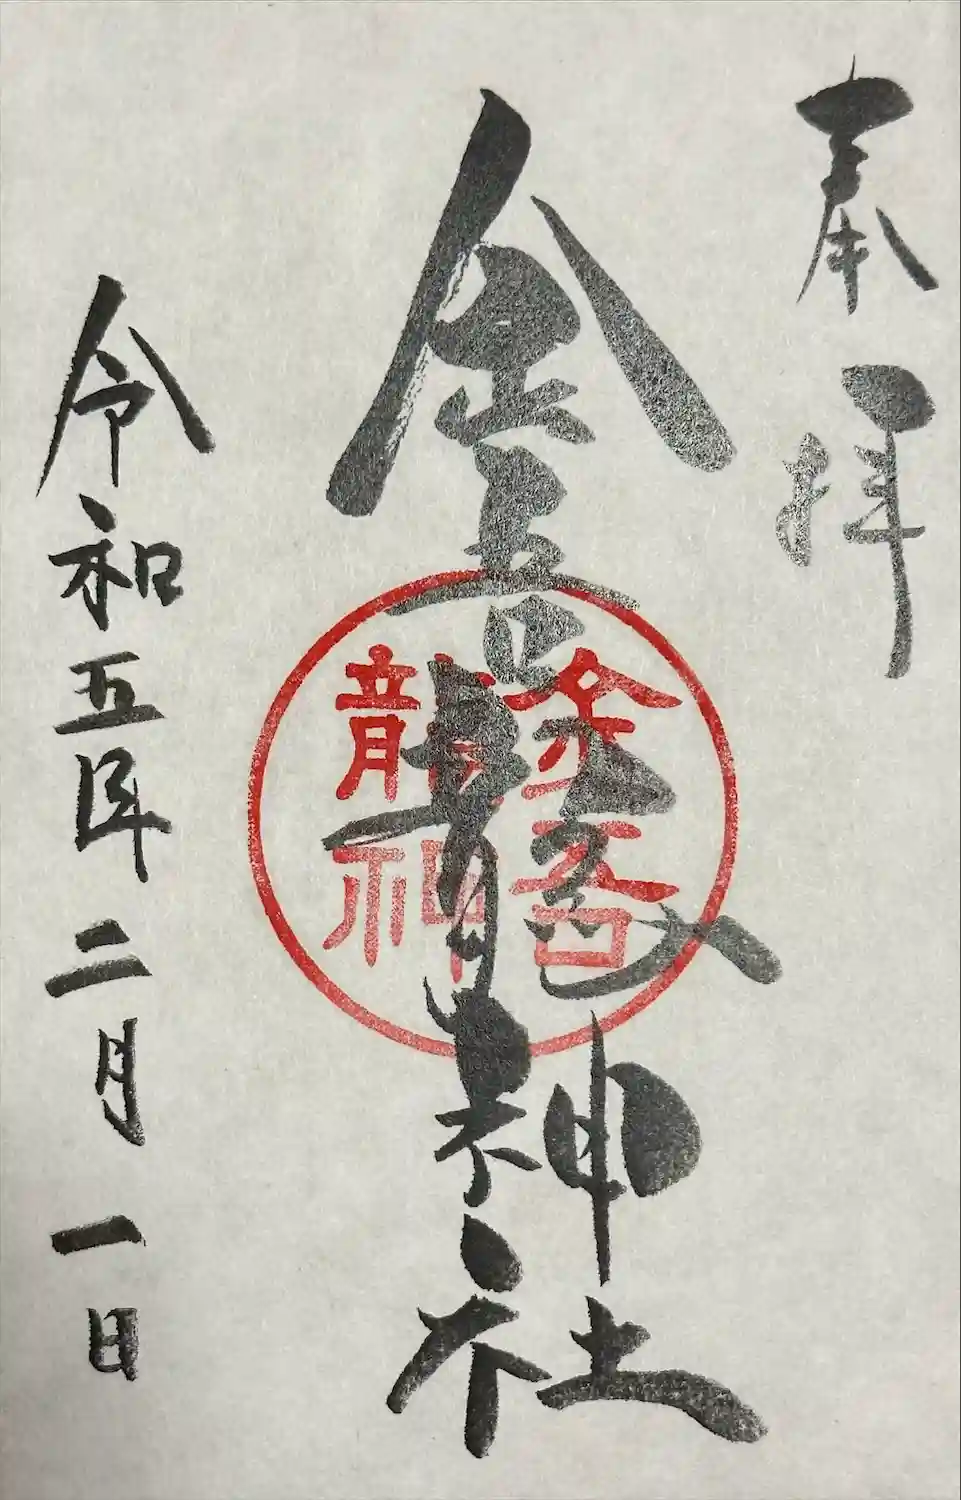 奉拝
金吾龍神社
金吾
龍神
令和五年二月一日